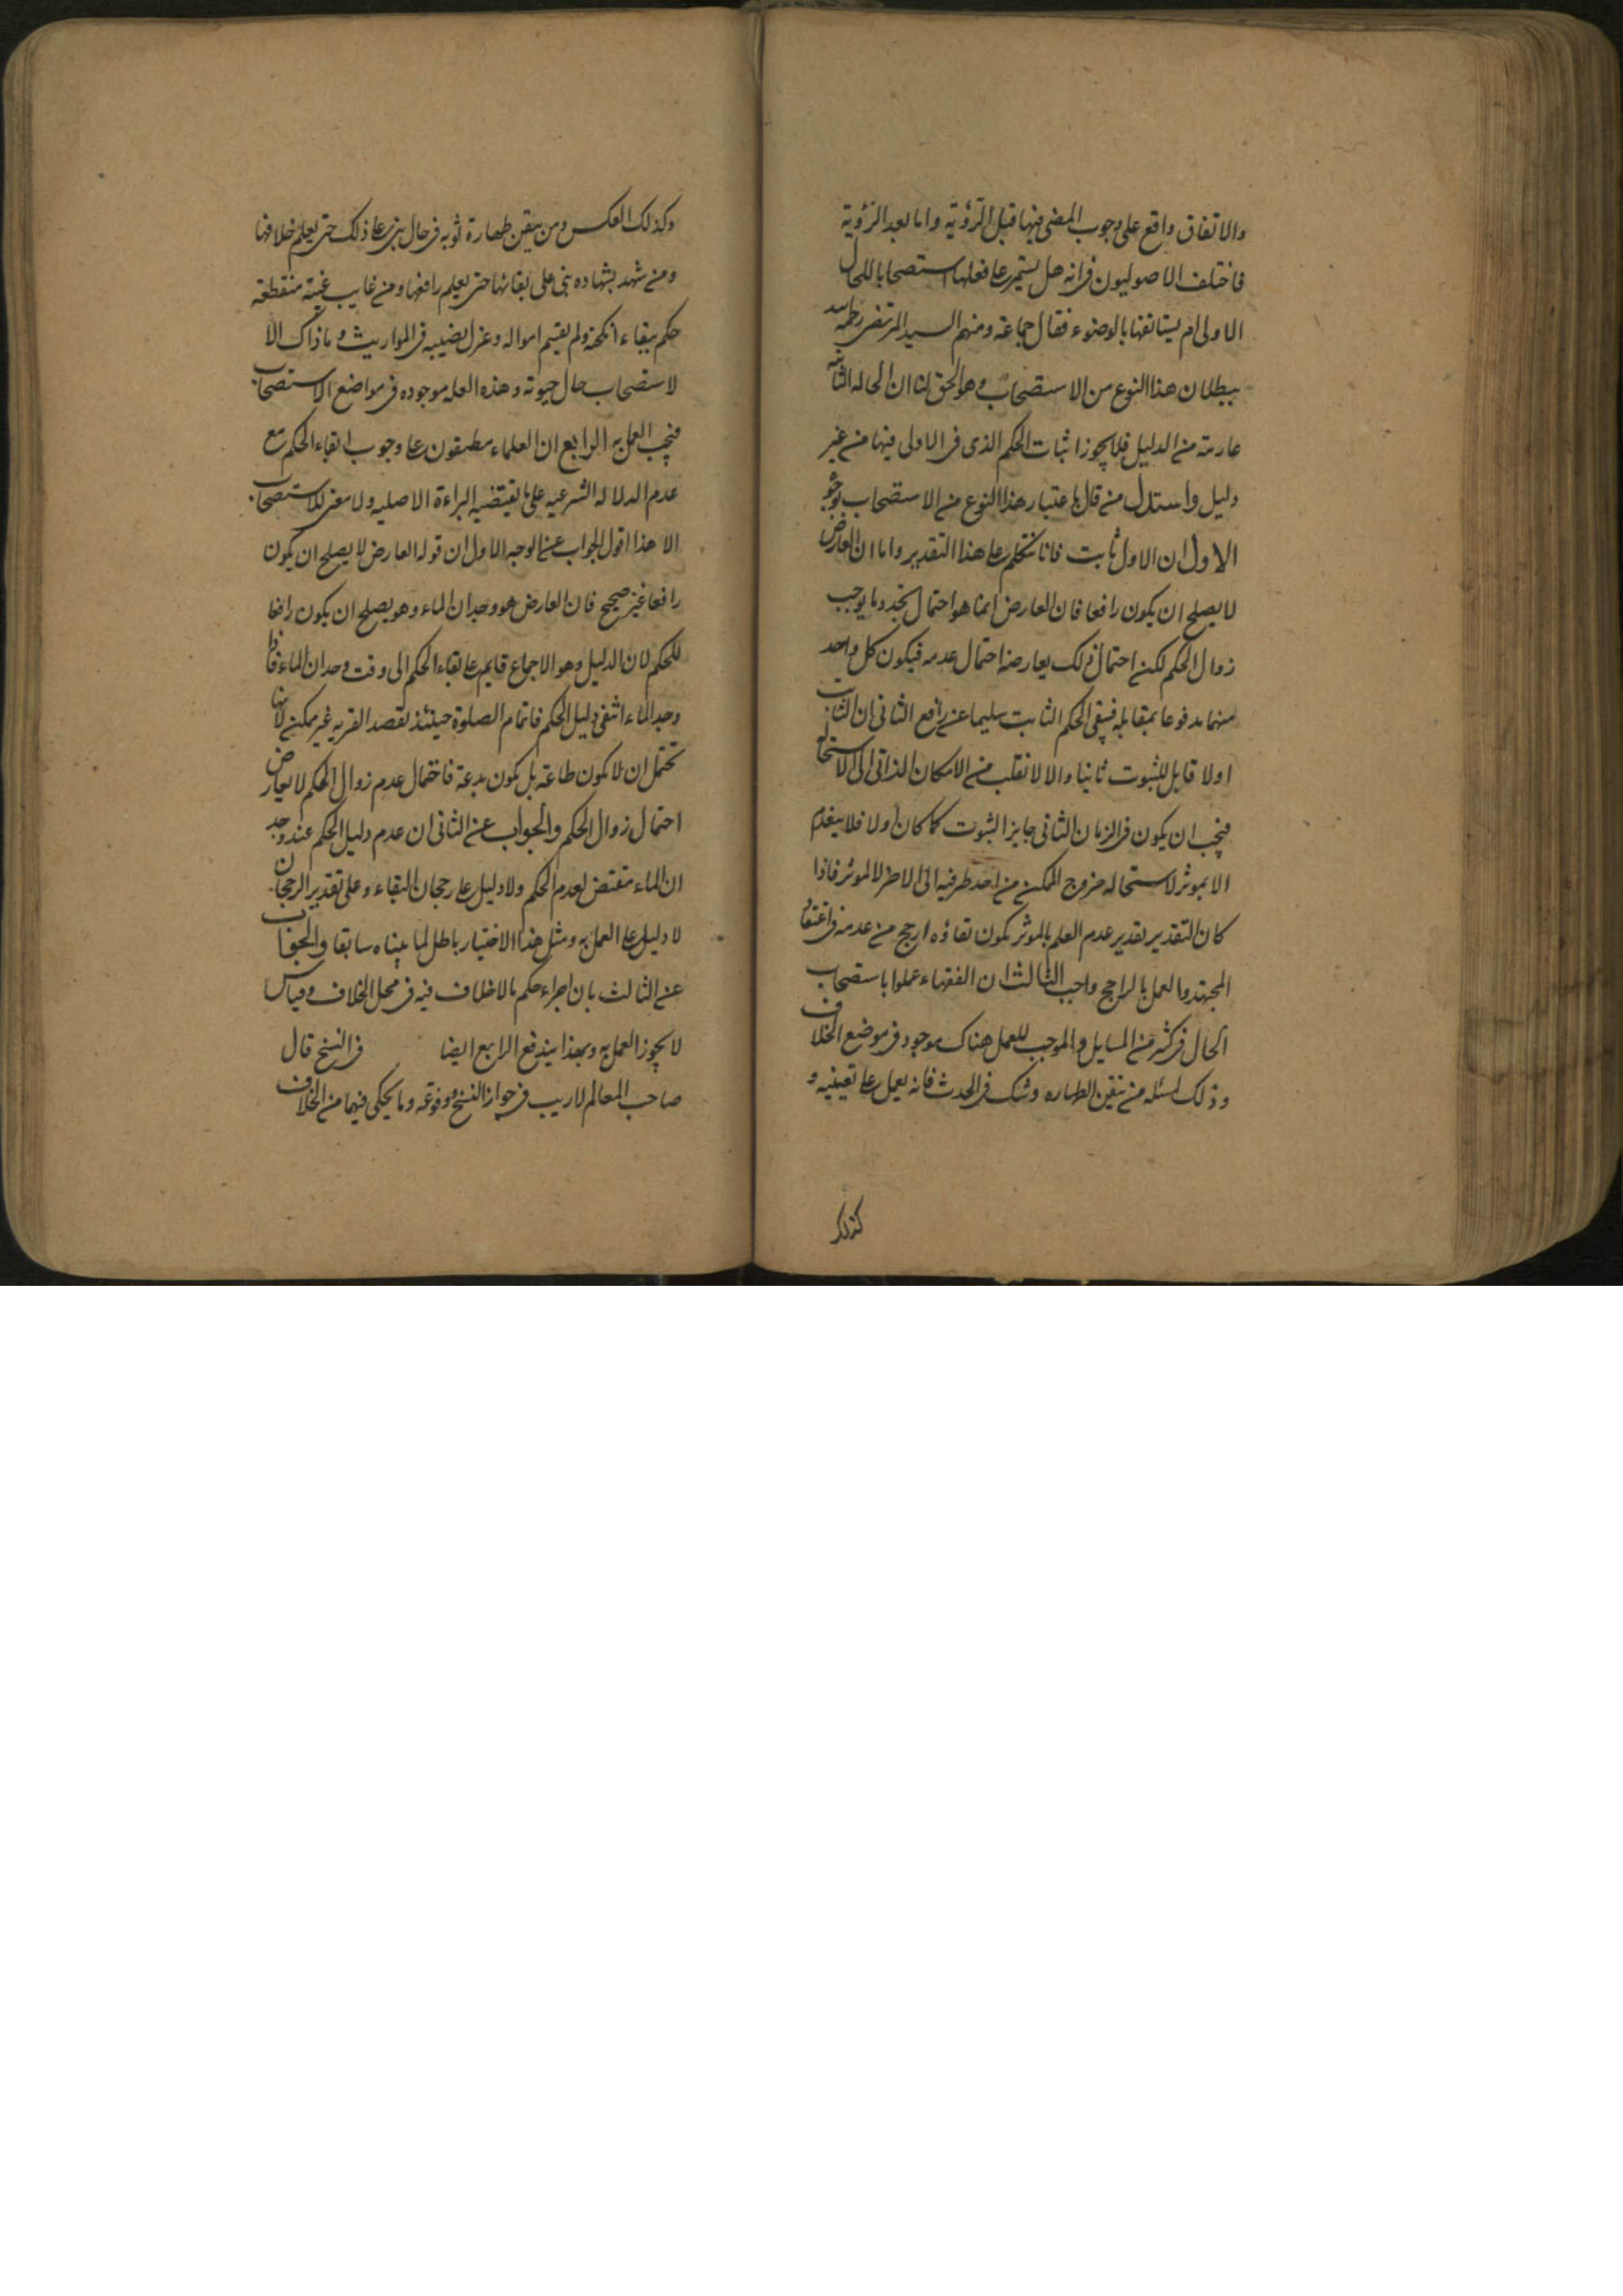 والاتفاق واقع على وجوب المضى فيها قبل الرؤية واما بعد الرؤية
فاختلف الاصوليون فى انه هل يستمر على فعلها استصحابا للحال
الاولى ام يستانفها بالوضوء فقال جماعة ومنهم السيد المرتضى رحمه الله
ببطلان هذا النوع من الاستصحاب وهو الحق لنا ان الحاله الثانيه
عارية من الدليل فلا يجوز اثبات الحكم الذى فى الاولى فيها من غير
دليل واستدل من قال باعتبار هذا النوع من الاستصحاب بوجوه
الاول ان الاول ثابت فانا نتكلم على هذا التقدير واما ان العارض
لا يصلح ان يكون رافعا فان العارض انما هو احتمال تجدد ما يوجب
زوال الحكم لكن احتمال ذلك يعارضه احتمال عدمه فيكون كل واحد
منهما مدفوعا بمقابله فيبقى الحكم الثابت سليما عن رافع الثانى ان الثابت
اولا قابل للثبوت ثانيا والا لانقلب من الامكان الذاتى الى الاستحالة
فيجب ان يكون فى الزمان الثانى جايز الثبوت كما كان اولا فلا ينعدم
الا بموثر لاستحاله خروج الممكن من احد طرفيه الى الاخر لا لموثر فاذا
كان التقدير تقدير عدم العلم بالموثر يكون بقاؤه ارجح من عدمه فى اعتقاد
المجتهد والعمل بالراجح واجب الثالث ان الفقهاء عملوا باستصحاب
الحال فى كثير من المسايل والموجب للعمل هناك موجود فى موضع الخلاف
وذلك لمسئلة من تيقن الطهاره وشك فى الحدث فانه يعمل على تعينيه و
كذلك
وكذلك العكس ومن تيقن طهارة ثوبه فى حال بنى على ذلك حتى يعلم خلافها
ومن شهد بشهاده بنى على بقائها حتى يعلم رافعها ومن غايب غيبة منقطعة
حكم ببقاء انكحته ولم يقسم امواله وعزل نصيبه فى المواريث وما ذاك الا
لاستصحاب حال حيوته وهذه العله موجوده فى مواضع الاستصحاب
فيجب العمل به الرابع ان العلماء مطبقون على وجوب ابقاء الحكم مع
عدم الدلاله الشرعيه على ما يقتضيه البراءة الاصليه ولا معنى للاستصحاب
الا هذا اقول الجواب عن الوجه الاول ان قوله العارض لا يصلح ان يكون
رافعا غير صحيح فان العارض هو وجدان الماء وهو يصلح ان يكون رافعا
للحكم لان الدليل وهو الاجماع قايم على بقاء الحكم الى وقت وجدان الماء فاذا
وجد الماء انتفى دليل الحكم فاتمام الصلوة حينئذ لقصد القربه غير ممكن لانها
تحتمل ان لا تكون طاعة بل تكون بدعة فاحتمال عدم زوال الحكم لا يعارض
احتمال زوال الحكم والجواب عن الثانى ان عدم دليل الحكم عند وجد
ان الماء مقتض لعدم الحكم ولا دليل على رجحان البقاء وعلى تقدير الرجحان
لا دليل على العمل به ومثل هذا الاختيار باطل لما بيناه سابقا والجواب
عن الثالث بان اجراء حكم ما لا خلاف فيه فى محل الخلاف قياس
لا يجوز العمل به وبهذا يندفع الرابع ايضا فى النسخ قال
صاحب المعالم لا ريب فى جواز النسخ ووقوعه وما يحكى فيهما من الخلاف